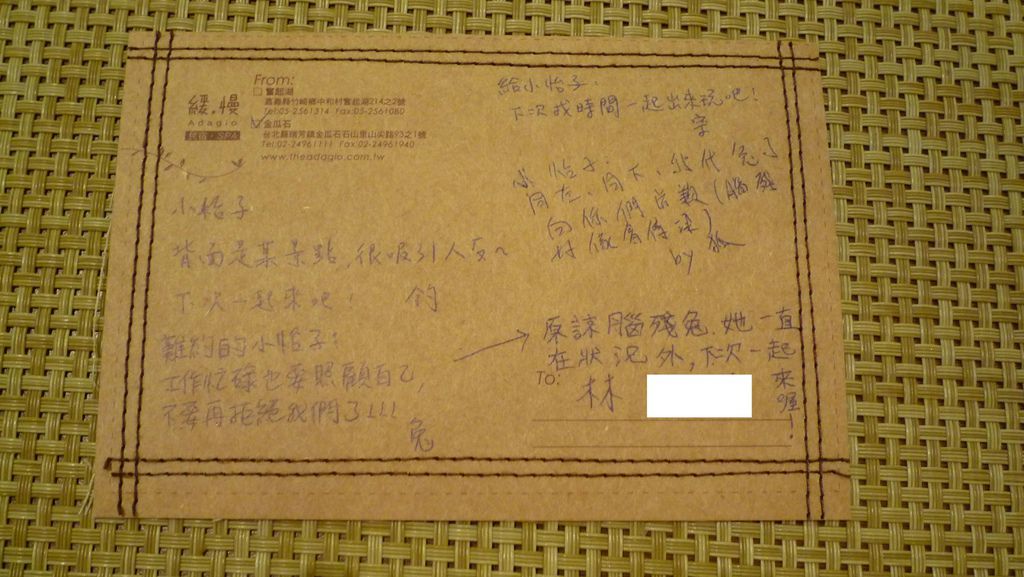 緩.慢
Adagio
民宿.SPA
From:
奮起湖
嘉義縣竹崎鄉中和村奮起湖214之2號
Tel:05-2561314 Fax:05-2561080
金瓜石
台北縣瑞芳鎮金瓜石石山里山尖路93之1號
Tel:02-24961111 Fax:02-24961940
www.theadagio.com.tw
小怡子
背面是某景點,很吸引人
下次一起來吧!
難約的小怡子:
工作忙碌也要照顧自己,
不要再拒絕我們了!!!
兔
給小怡子.
下次找時間一起出來玩吧!
小怡子.
向你們道歉(腦殘
by
原諒腦殘兔,她一直
在狀況外,下次一起
來喔!
To:
林